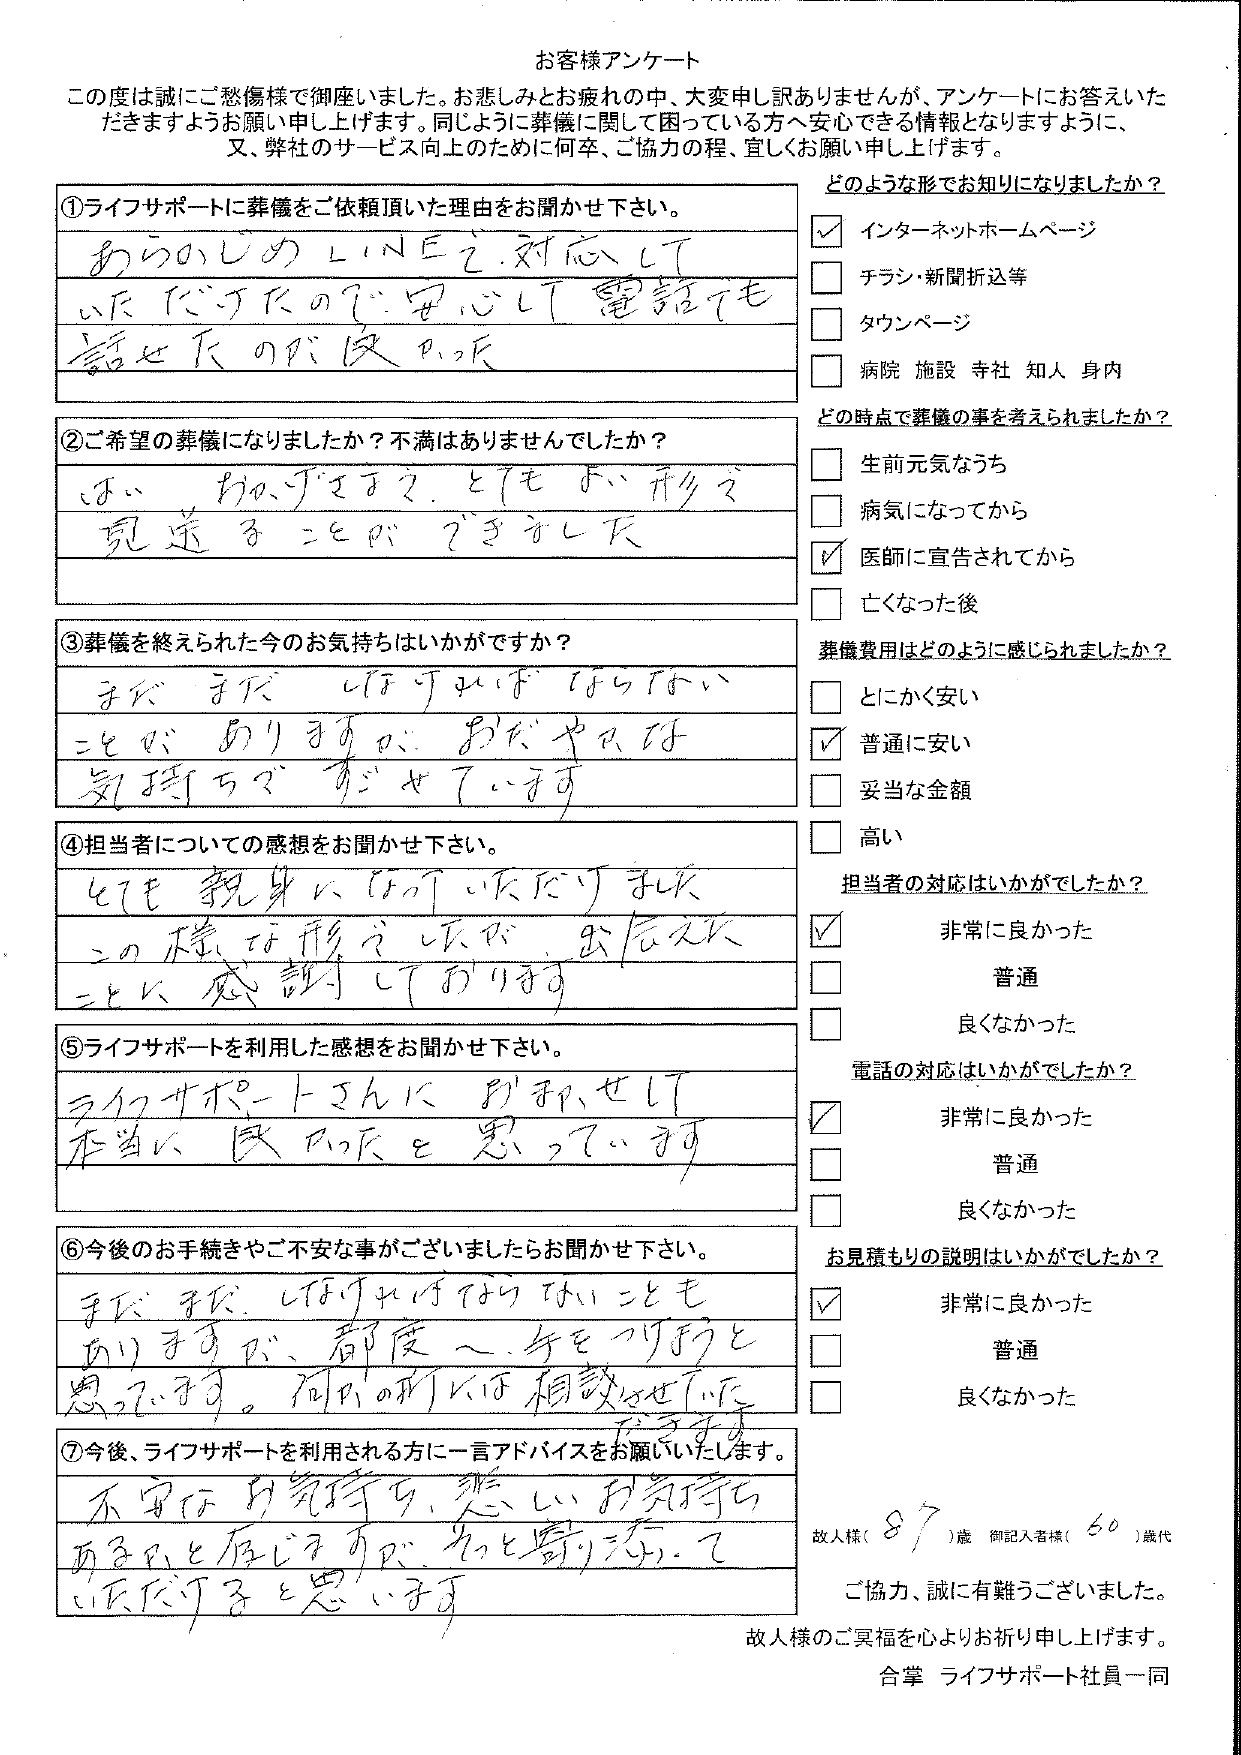 お客様アンケート
この度は誠にご愁傷様で御座いました。お悲しみとお疲れの中、大変申し訳ありませんが、アンケートにお答えいた
だきますようお願い申し上げます。同じように葬儀に関して困っている方へ安心できる情報となりますように、
又、弊社のサービス向上のために何卒、ご協力の程、宜しくお願い申し上げます。
①ライフサポートに葬儀をご依頼頂いた理由をお聞かせ下さい。
あらかじめLINEで対応して
いただけたので安心して電話でも
話せたのが良かった
②ご希望の葬儀になりましたか？不満はありませんでしたか？
はい おかげさまで、とてもよい形で
見送ることができました
③葬儀を終えられた今のお気持ちはいかがですか？
まだまだ しなければならない
ことがありますが、おだやかな
気持ちですごせています
④担当者についての感想をお聞かせ下さい。
とても親身になっていただけました
この様な形でしたが、出会えた
ことに感謝しております
⑤ライフサポートを利用した感想をお聞かせ下さい。
ライフサポートさんにおまかせして
本当に良かったと思っています
⑥今後のお手続きやご不安な事がございましたらお聞かせ下さい。
まだまだ、しなければならないことも
ありますが、都度へ、手をつけようと
思っています。何かの折には相談させていた
だきます
⑦今後、ライフサポートを利用される方に一言アドバイスをお願いいたします。
不安なお気持ち、悲しいお気持ち
あるかと存じますが、そっと寄り添って
いただけると思います
どのような形でお知りになりましたか？
☑ インターネットホームページ
□ チラシ・新聞折込等
□ タウンページ
□ 病院 施設 寺社 知人 身内
どの時点で葬儀の事を考えられましたか？
□ 生前元気なうち
□ 病気になってから
☑ 医師に宣告されてから
□ 亡くなった後
葬儀費用はどのように感じられましたか？
□ とにかく安い
☑ 普通に安い
□ 妥当な金額
□ 高い
担当者の対応はいかがでしたか？
☑ 非常に良かった
□ 普通
□ 良くなかった
電話の対応はいかがでしたか？
☑ 非常に良かった
□ 普通
□ 良くなかった
お見積もりの説明はいかがでしたか？
☑ 非常に良かった
□ 普通
□ 良くなかった
故人様（ 87 ）歳 御記入者様（ 60 ）歳代
ご協力、誠に有難うございました。
故人様のご冥福を心よりお祈り申し上げます。
合掌 ライフサポート社員一同